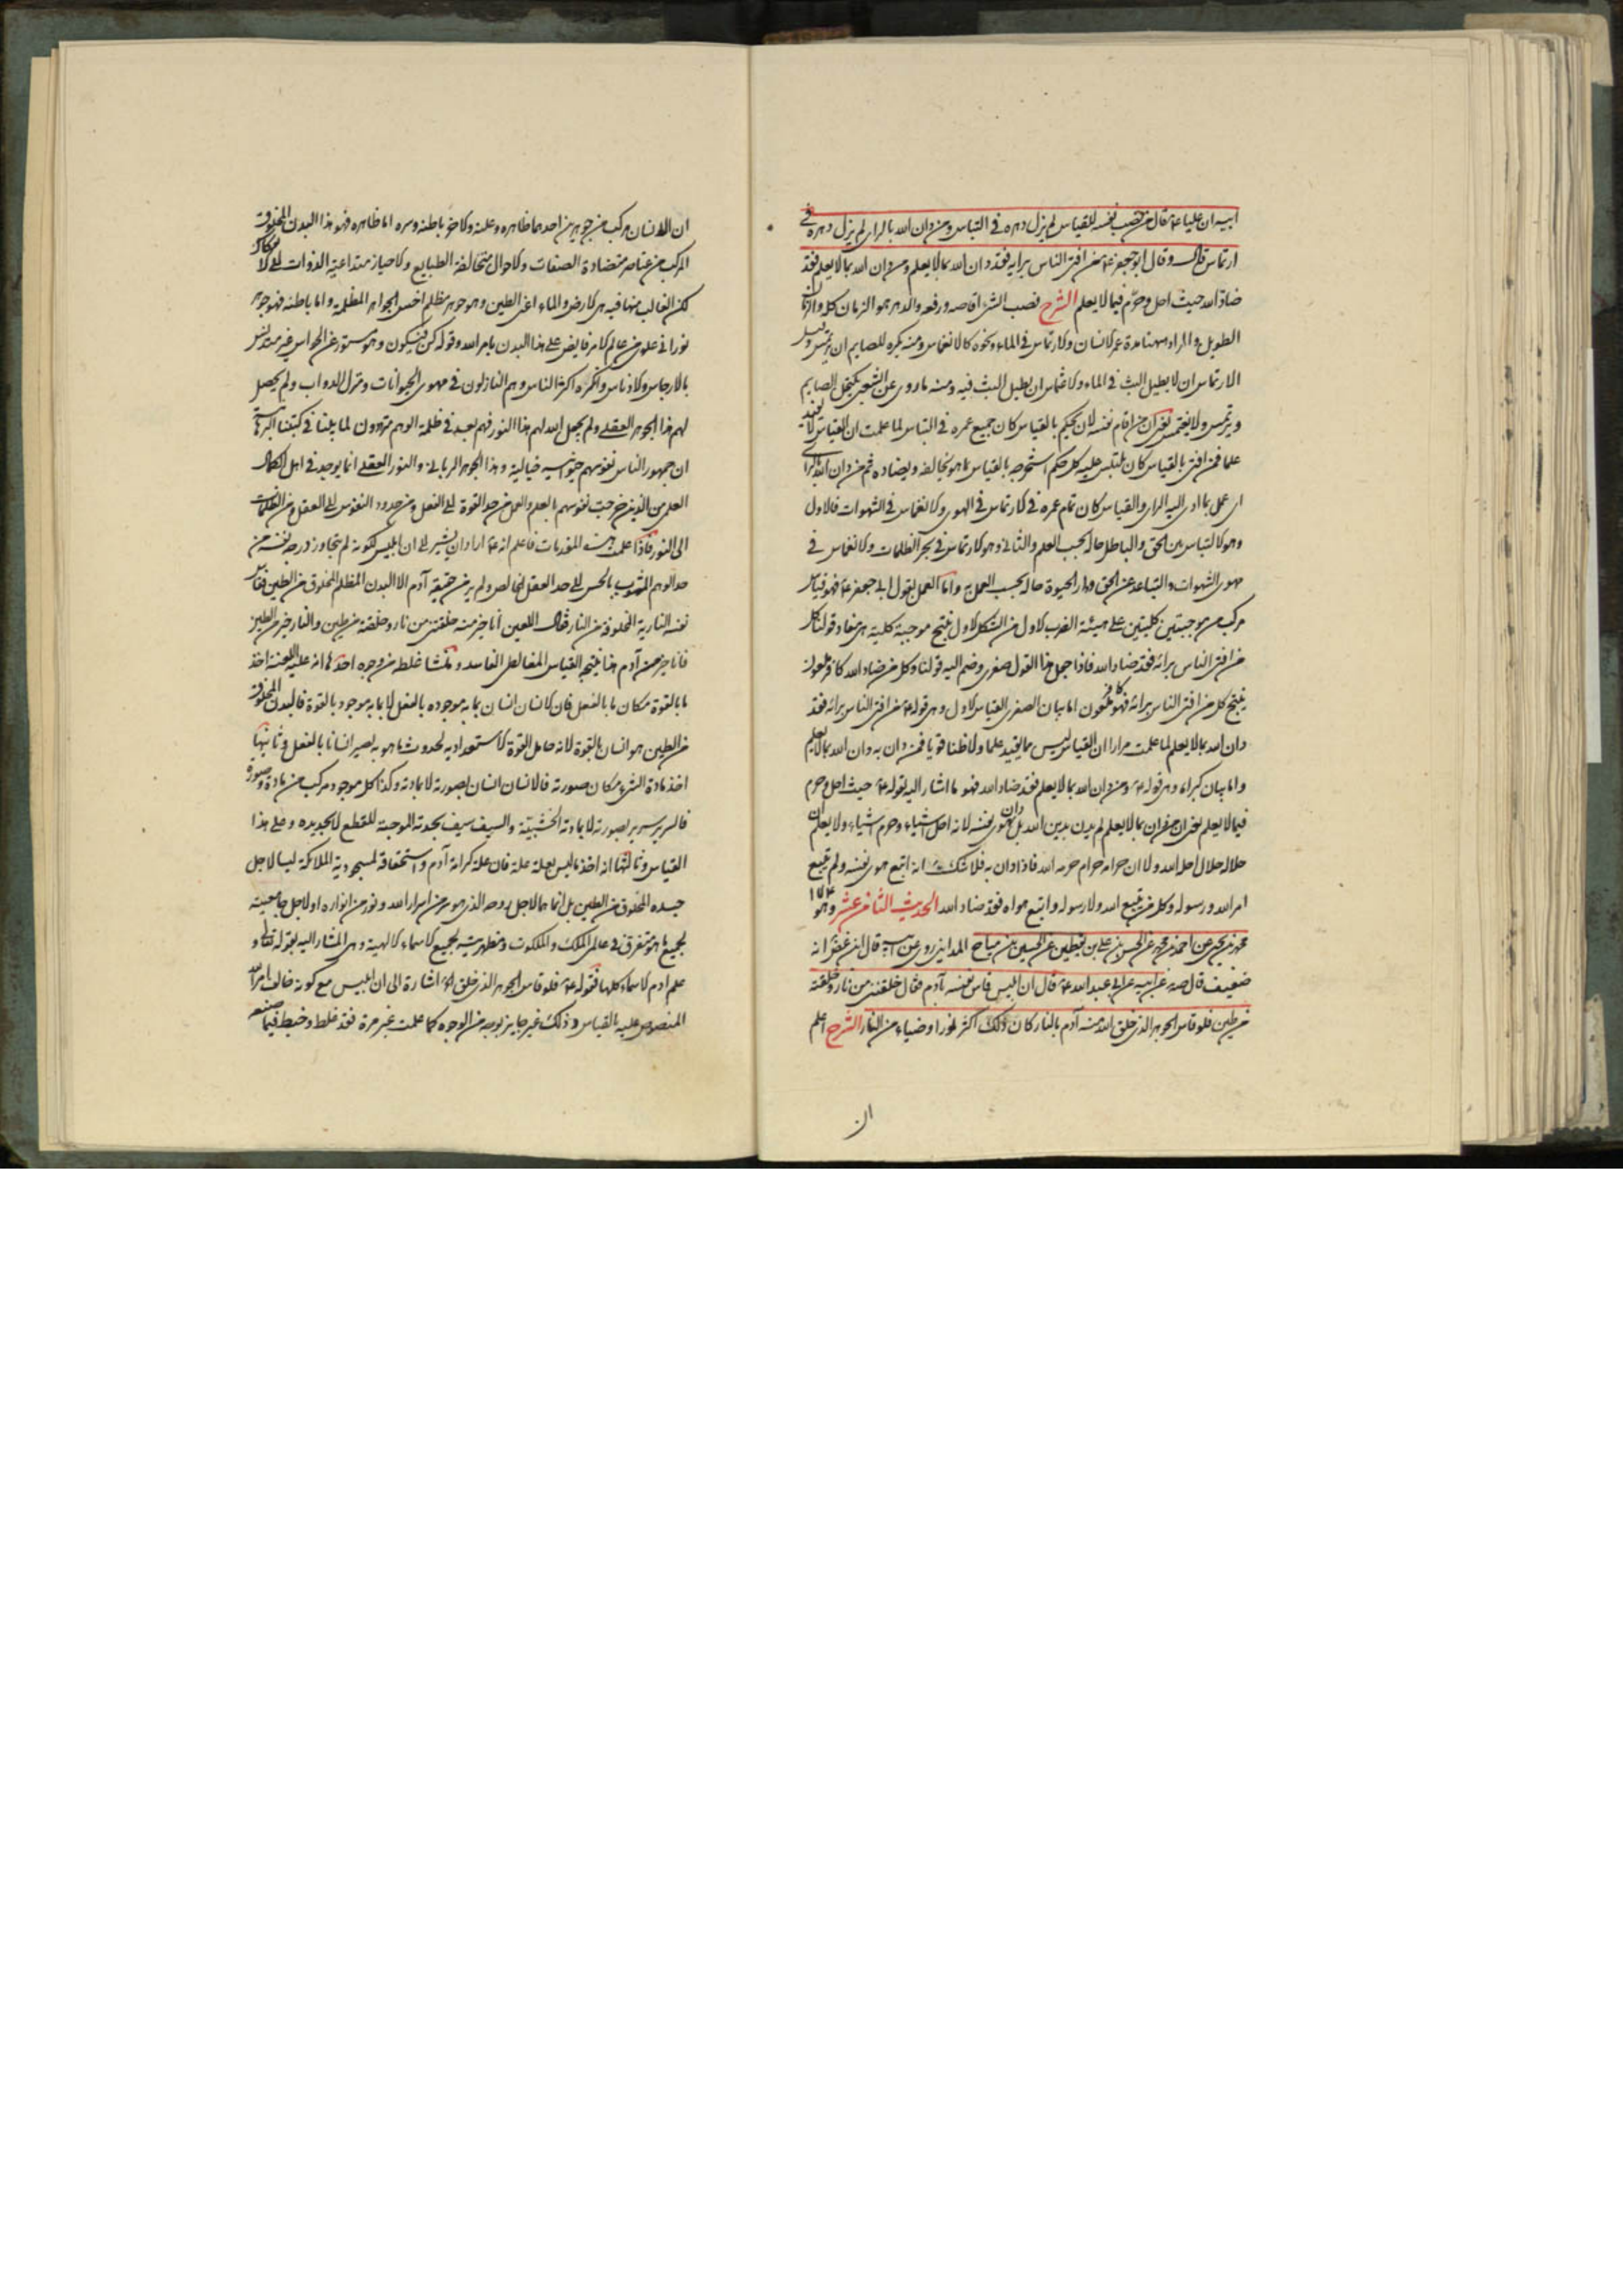 ابيه ان عليا ع قال من نصب نفسه للقياس لم يزل دهره في التباس ومن دان الله بالراي لم يزل دهره في
ارتماس قال وقال ابو جعفر ع من افتى الناس برايه فقد دان الله بما لا يعلم ومن دان الله بما لا يعلم فقد
ضاد الله حيث احل وحرم فيما لا يعلم الشرح نصب الشئ اقامه ورفعه والدهر هو الزمان كله والزمان
الطويل والمراد ههنا مدة عمر الانسان والارتماس في الماء ونحوه كالانغماس ومنه يكره للصايم ان يرتمس وقيل
الارتماس ان لا يطيل اللبث في الماء والاغتماس ان يطيل اللبث فيه ومنه ما روى عن الشعبي يكتحل الصايم
ويرتمس ولا يغتمس يعنى ان من اقام نفسه لان يحكم بالقياس كان جميع عمره في التباس لما علمت ان القياس لا يفيد
علما فمن افتى بالقياس كان يلتبس عليه كل حكم استخرجه بالقياس بما هو يخالفه ويضاده ثم من دان الله بالراى
اى عمل بما ادى اليه الراى والقياس كان تمام عمره في الارتماس في الهوى والانغماس في الشهوات فالاول
وهو الالتباس بين الحق والباطل حاله بحسب العلم والثانى وهو الارتماس في بحر الظلمات والانغماس في
مهوى الشهوات والتباعد عن الحق ودار الحيوة حاله بحسب العمل واما العمل بقول ابي جعفر ع فهو قياس
مركب من موجبتين كليتين على هيئة الضرب الاول من الشكل الاول ينتج موجبة كلية هى مفاد قولنا كل
من افتى الناس برائه فقد ضاد الله فاذا جعل هذا القول صغرى وضم اليه قولنا وكل من ضاد الله كافر ملعون
ينتج كل من افتى الناس برائه فهو كافر ملعون اما بيان الصغرى القياس الاول وهى قوله ع من افتى الناس برائه فقد
دان الله بما لا يعلم لما علمت مرارا ان القياس ليس مما يفيد علما ولا ظنا قويا فمن دان به دان الله بما لا يعلم
واما بيان كبراه وهى قوله ع ومن دان الله بما لا يعلم فقد ضاد الله فهو ما اشار اليه بقوله ع حيث احل وحرم
فيما لا يعلم يعنى ان من دان بما لا يعلم لم يدن بدين الله بل دان بهوى نفسه لانه احل اشياء وحرم اشياء ولا يعلم ان
حلاله حلال احل الله ولا ان حرامه حرام حرمه الله فاذا دان به فلا شك انه اتبع هوى نفسه ولم يتبع
امر الله ورسوله وكل من لم يتبع الله ولا رسوله واتبع هواه فقد ضاد الله الحديث الثامن عشر وهو ١٧٤
محمد بن يحيى عن احمد بن محمد عن الحسن بن على بن يقطين عن الحسين بن مياح المدايني روى عن ابيه قال ابن غض انه
ضعيف قال صه عن ابيه عن ابى عبد الله ع قال ان ابليس قاس نفسه بآدم فقال خلقتنى من نار وخلقته
من طين فلو قاس الجوهر الذى خلق الله منه آدم بالنار كان ذلك اكثر نورا وضياء من النار الشرح اعلم
ان
ان الانسان مركب من جوهرين احدهما ظاهره وعلنه والاخر باطنه وسره اما ظاهره فهو هذا البدن المخلوق
المركب من عناصر متضادة الصفات والاحوال متخالفة الطبايع والاحياز متداعية الذوات الى الانفكاك
لكن الغالب منها فيه هى الارض والماء اعنى الطين وهو جوهر مظلم اخس الجواهر المظلمة واما باطنه فهو جوهر
نورانى علوى من عالم الامر فايض على هذا البدن بامر الله وقوله كن فيكون وهو مستور عن الحواس غير متدنس
بالارجاس والادناس وانكره اكثر الناس وهم النازلون في مهوى الحيوانات ومنزل الدواب ولم يحصل
لهم هذا الجوهر العقلى ولم يجعل الله لهم هذا النور فهم بعد في ظلمة الوهم مترددون لما بينا في كتبنا البرهانية
ان جمهور الناس نفوسهم حيوانية خيالية وهذا الجوهر الربانى والنور العقلى انما يوجد في اهل الكمال
العلمى الذين خرجت نفوسهم بالعلم والعمل من حد القوة الى الفعل ومن حدود النفوس الى العقل ومن الظلمات
الى النور فاذا علمت هذه المقدمات فاعلم انه ع اراد ان يشير الى ان ابليس لكونه لم يتجاوز درجة نفسه من
حد الوهم المشوب بالحس الى حد العقل الخالص ولم ير من حقيقة آدم الا البدن المظلم المخلوق من الطين فقاس
نفسه النارية المخلوقة من النار فقال اللعين أنا خير منه خلقتنى من نار وخلقته من طين والنار خير من الطين
فانا خير من آدم هذا نتيجة القياس المغالطى الفاسد ومنشا غلطه من وجوه احدها انه عليه اللعنة اخذ
ما بالقوة مكان ما بالفعل فان الانسان انسان بما به موجوده بالفعل لا بما به موجود بالقوة فالبدن المخلوق
من الطين هو انسان بالقوة لانه حامل القوة الاستعدادية لحدوث ما هو به يصير انسانا بالفعل وثانيها
اخذ مادة الشئ مكان صورته فالانسان انسان بصورته لا بمادته وكذا كل موجود مركب من مادة وصورة
فالسرير سرير بصورته لا بمادته الخشبية والسيف سيف بحدته الموجبة للقطع لا بحديده وعلى هذا
القياس وثالثها انه اخذ ما ليس بعلة علة فان علة كرامة آدم واستحقاقه لمسجودية الملائكة ليسا لاجل
جسده المخلوق من الطين بل انما هما لاجل روحه الذى هو سر من اسرار الله ونور من انواره او لاجل جامعيته
لجميع ما هو متفرق في عالمى الملك والملكوت ومظهريته لجميع الاسماء الالهية وهى المشار اليه بقوله تعالى و
علم ادم الاسماء كلها فقوله ع فلو قاس الجوهر الذى خلق اه اشارة الى ان ابليس مع كونه خالف امر الله
المنصوص عليه بالقياس وذلك غير جايز بوجه من الوجوه كما علمت غير مرة فقد غلط وخبط فيما صنعه